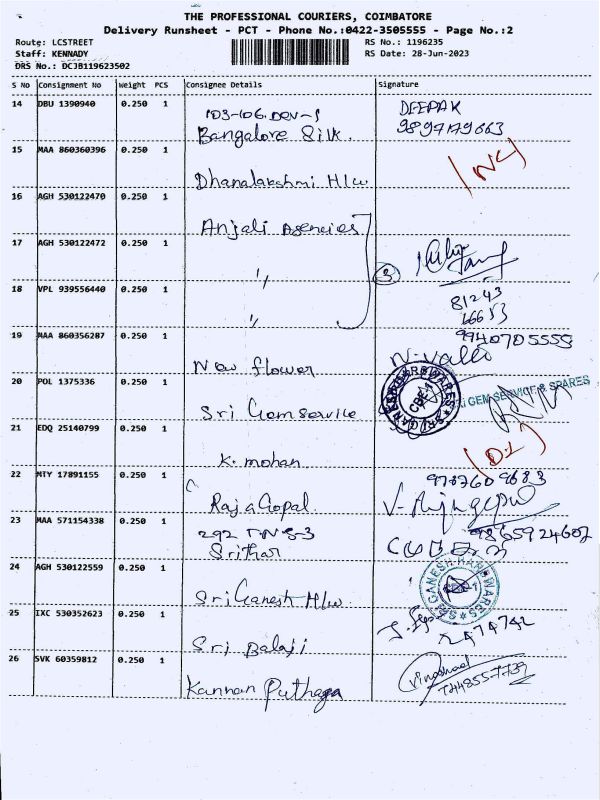 THE PROFESSIONAL COURIERS, COIMBATORE
Delivery Runsheet - PCT - Phone No.:0422-3505555 - Page No.:2
Route: LCSTREET
RS No.: 1196235
Staff: KENNADY
RS Date: 28-Jun-2023
DRS No.: DCJB119623502
S No Consignment No Weight PCS Consignee Details Signature
14 DBU 1390940 0.250 1
Bangalore Silk.
DEEPAK
9897179663
15 MAA 860360396 0.250 1
Dhanalakshmi H/w
16 AGH 530122470 0.250 1
Anjali Agencies
17 AGH 530122472 0.250 1
"
3
18 VPL 939556440 0.250 1
"
81243
19 MAA 860356287 0.250 1
New flower
9940705555
N. Valli
20 POL 1375336 0.250 1
Sri Gem service
SRI GANESH HARDWARES
CBE-1
GEM SERVICE & SPARES
21 EDQ 25140799 0.250 1
K. mohan
22 MTY 17891155 0.250 1
Raja Gopal
9787609683
23 MAA 571154338 0.250 1
Srithar
9865924602
24 AGH 530122559 0.250 1
Sri Ganesh H/w
SRI GANESH HARDWARES
25 IXC 530352623 0.250 1
Sri Balaji
2474742
26 SVK 60359812 0.250 1
Kannan Puthaga
7448557739